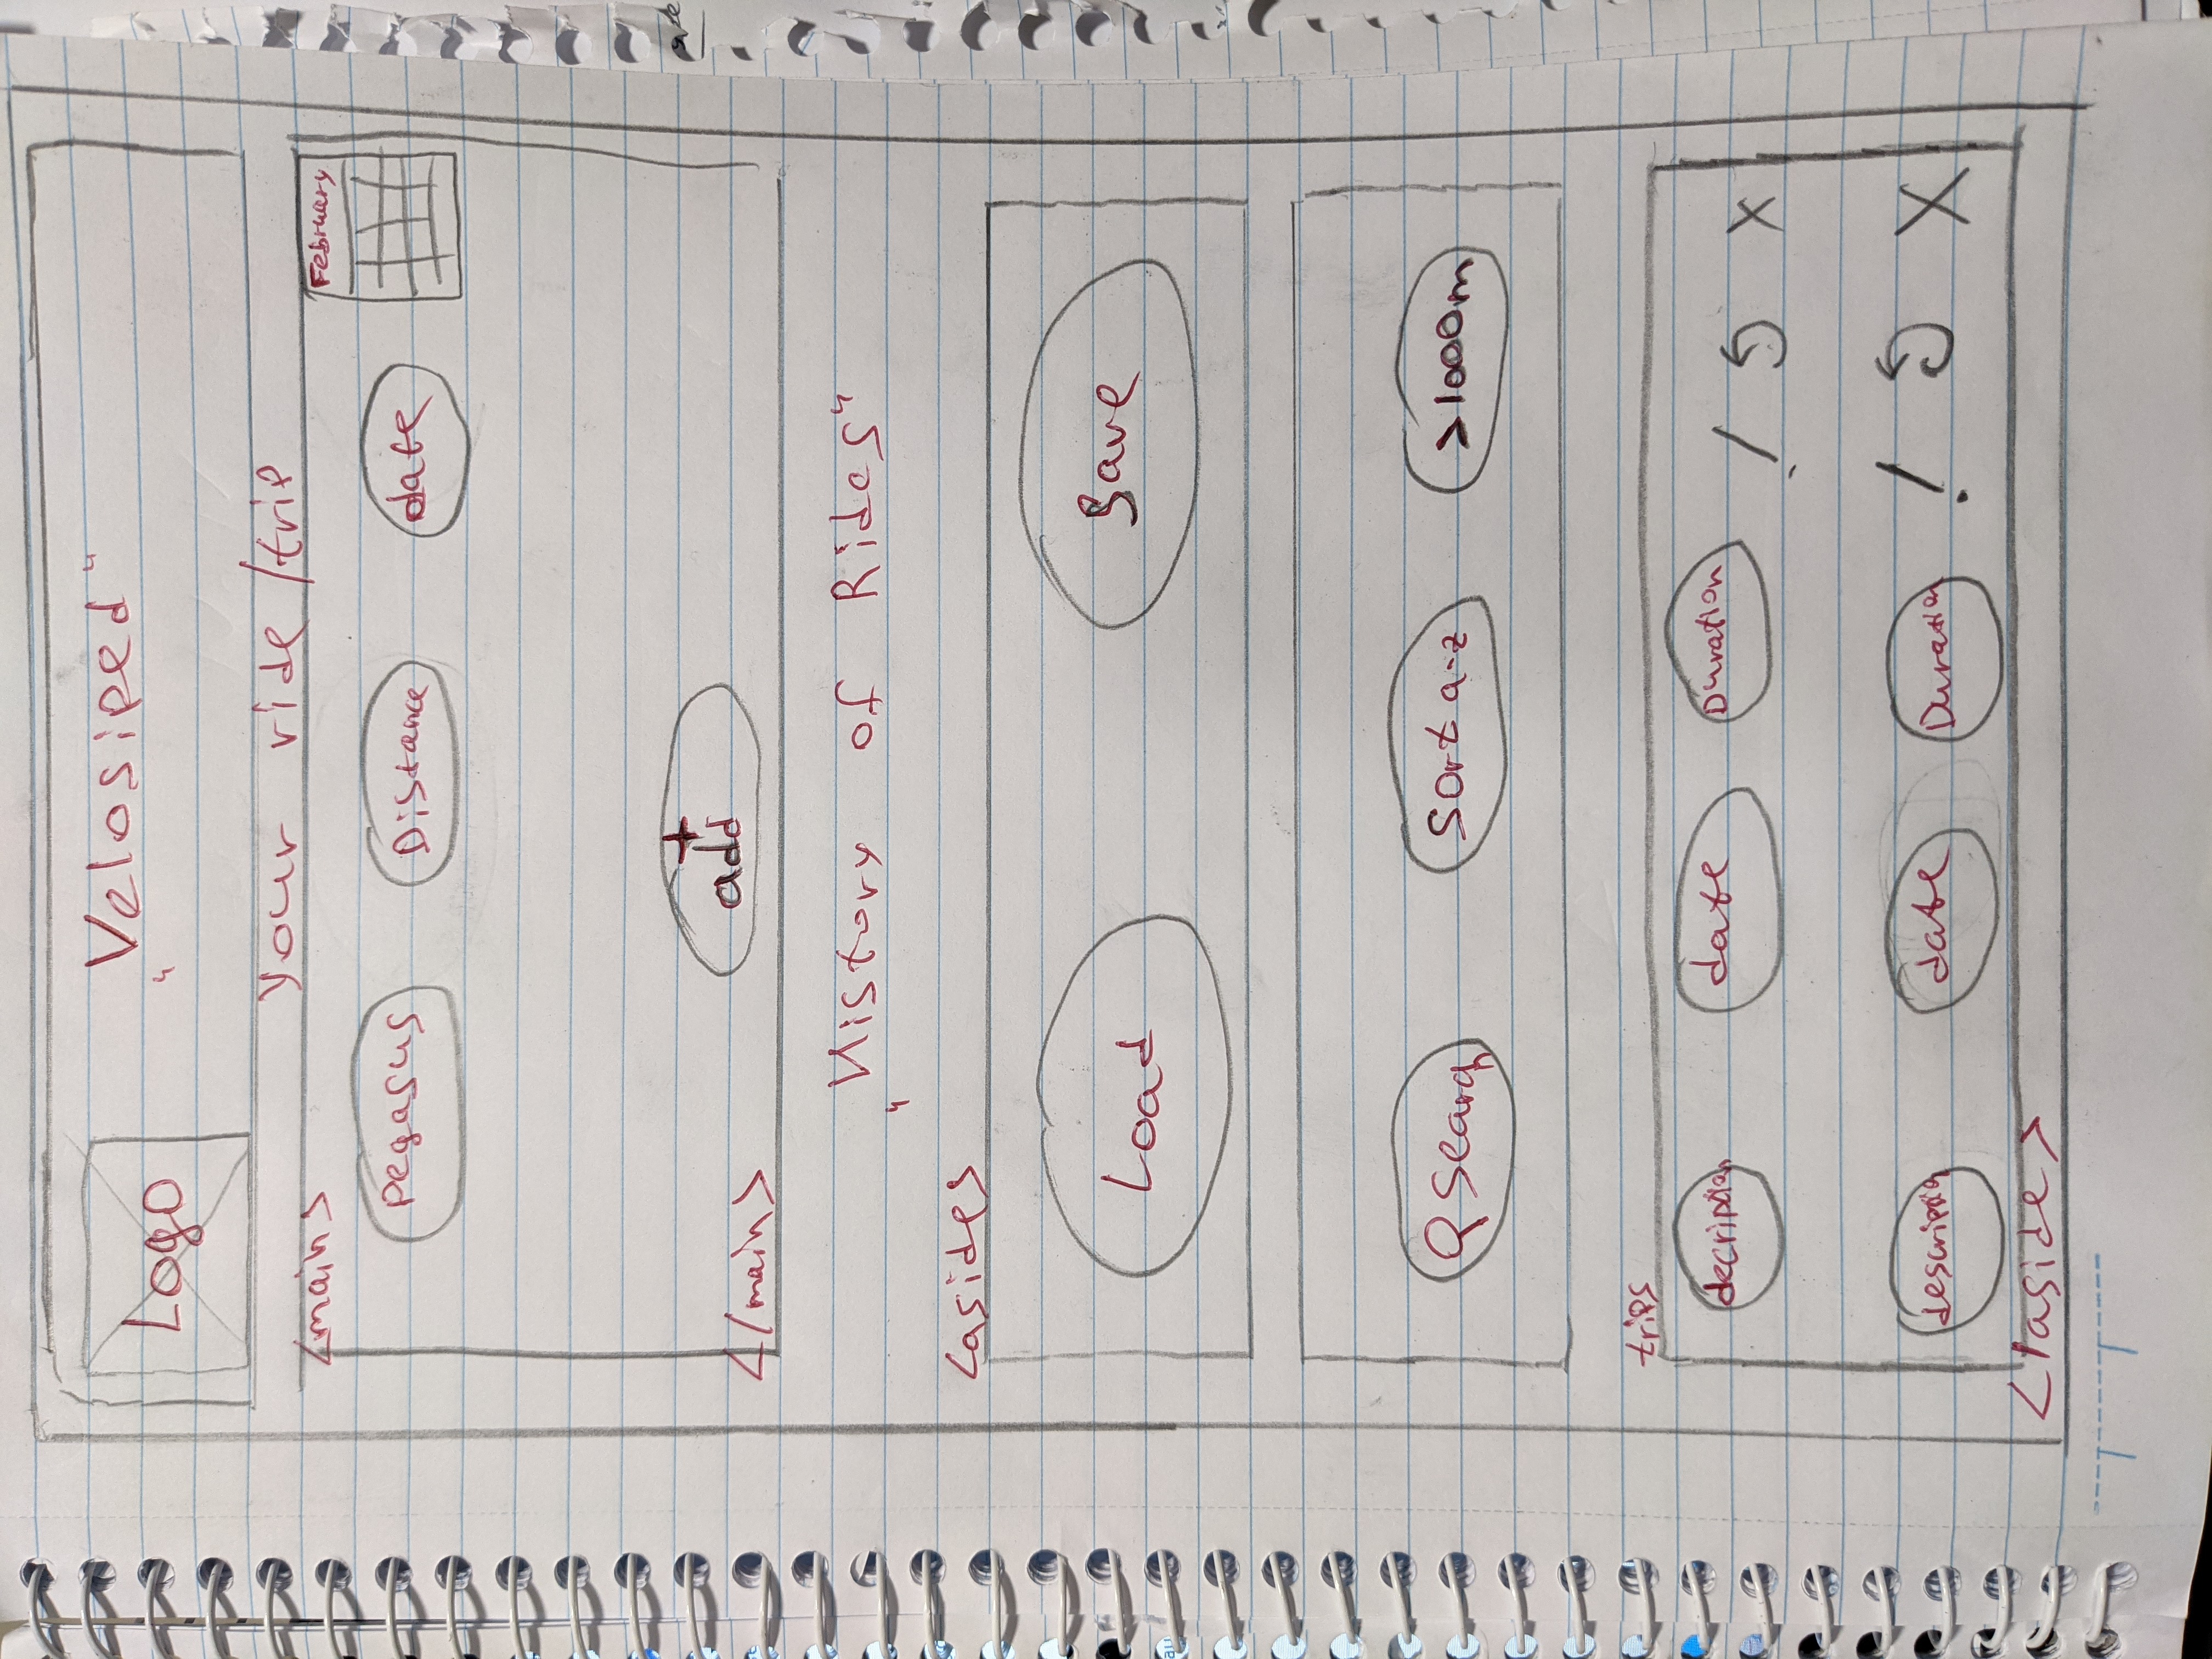 "Velosiped"
Logo
Your ride/trip
<main>
February
pegasus Distance date
+
add
</main>
"History of Rides"
<asides
Load Save
Search Sort a-z >1000m
trips
decription date Duration ! X
description date Duration ! X
</aside>